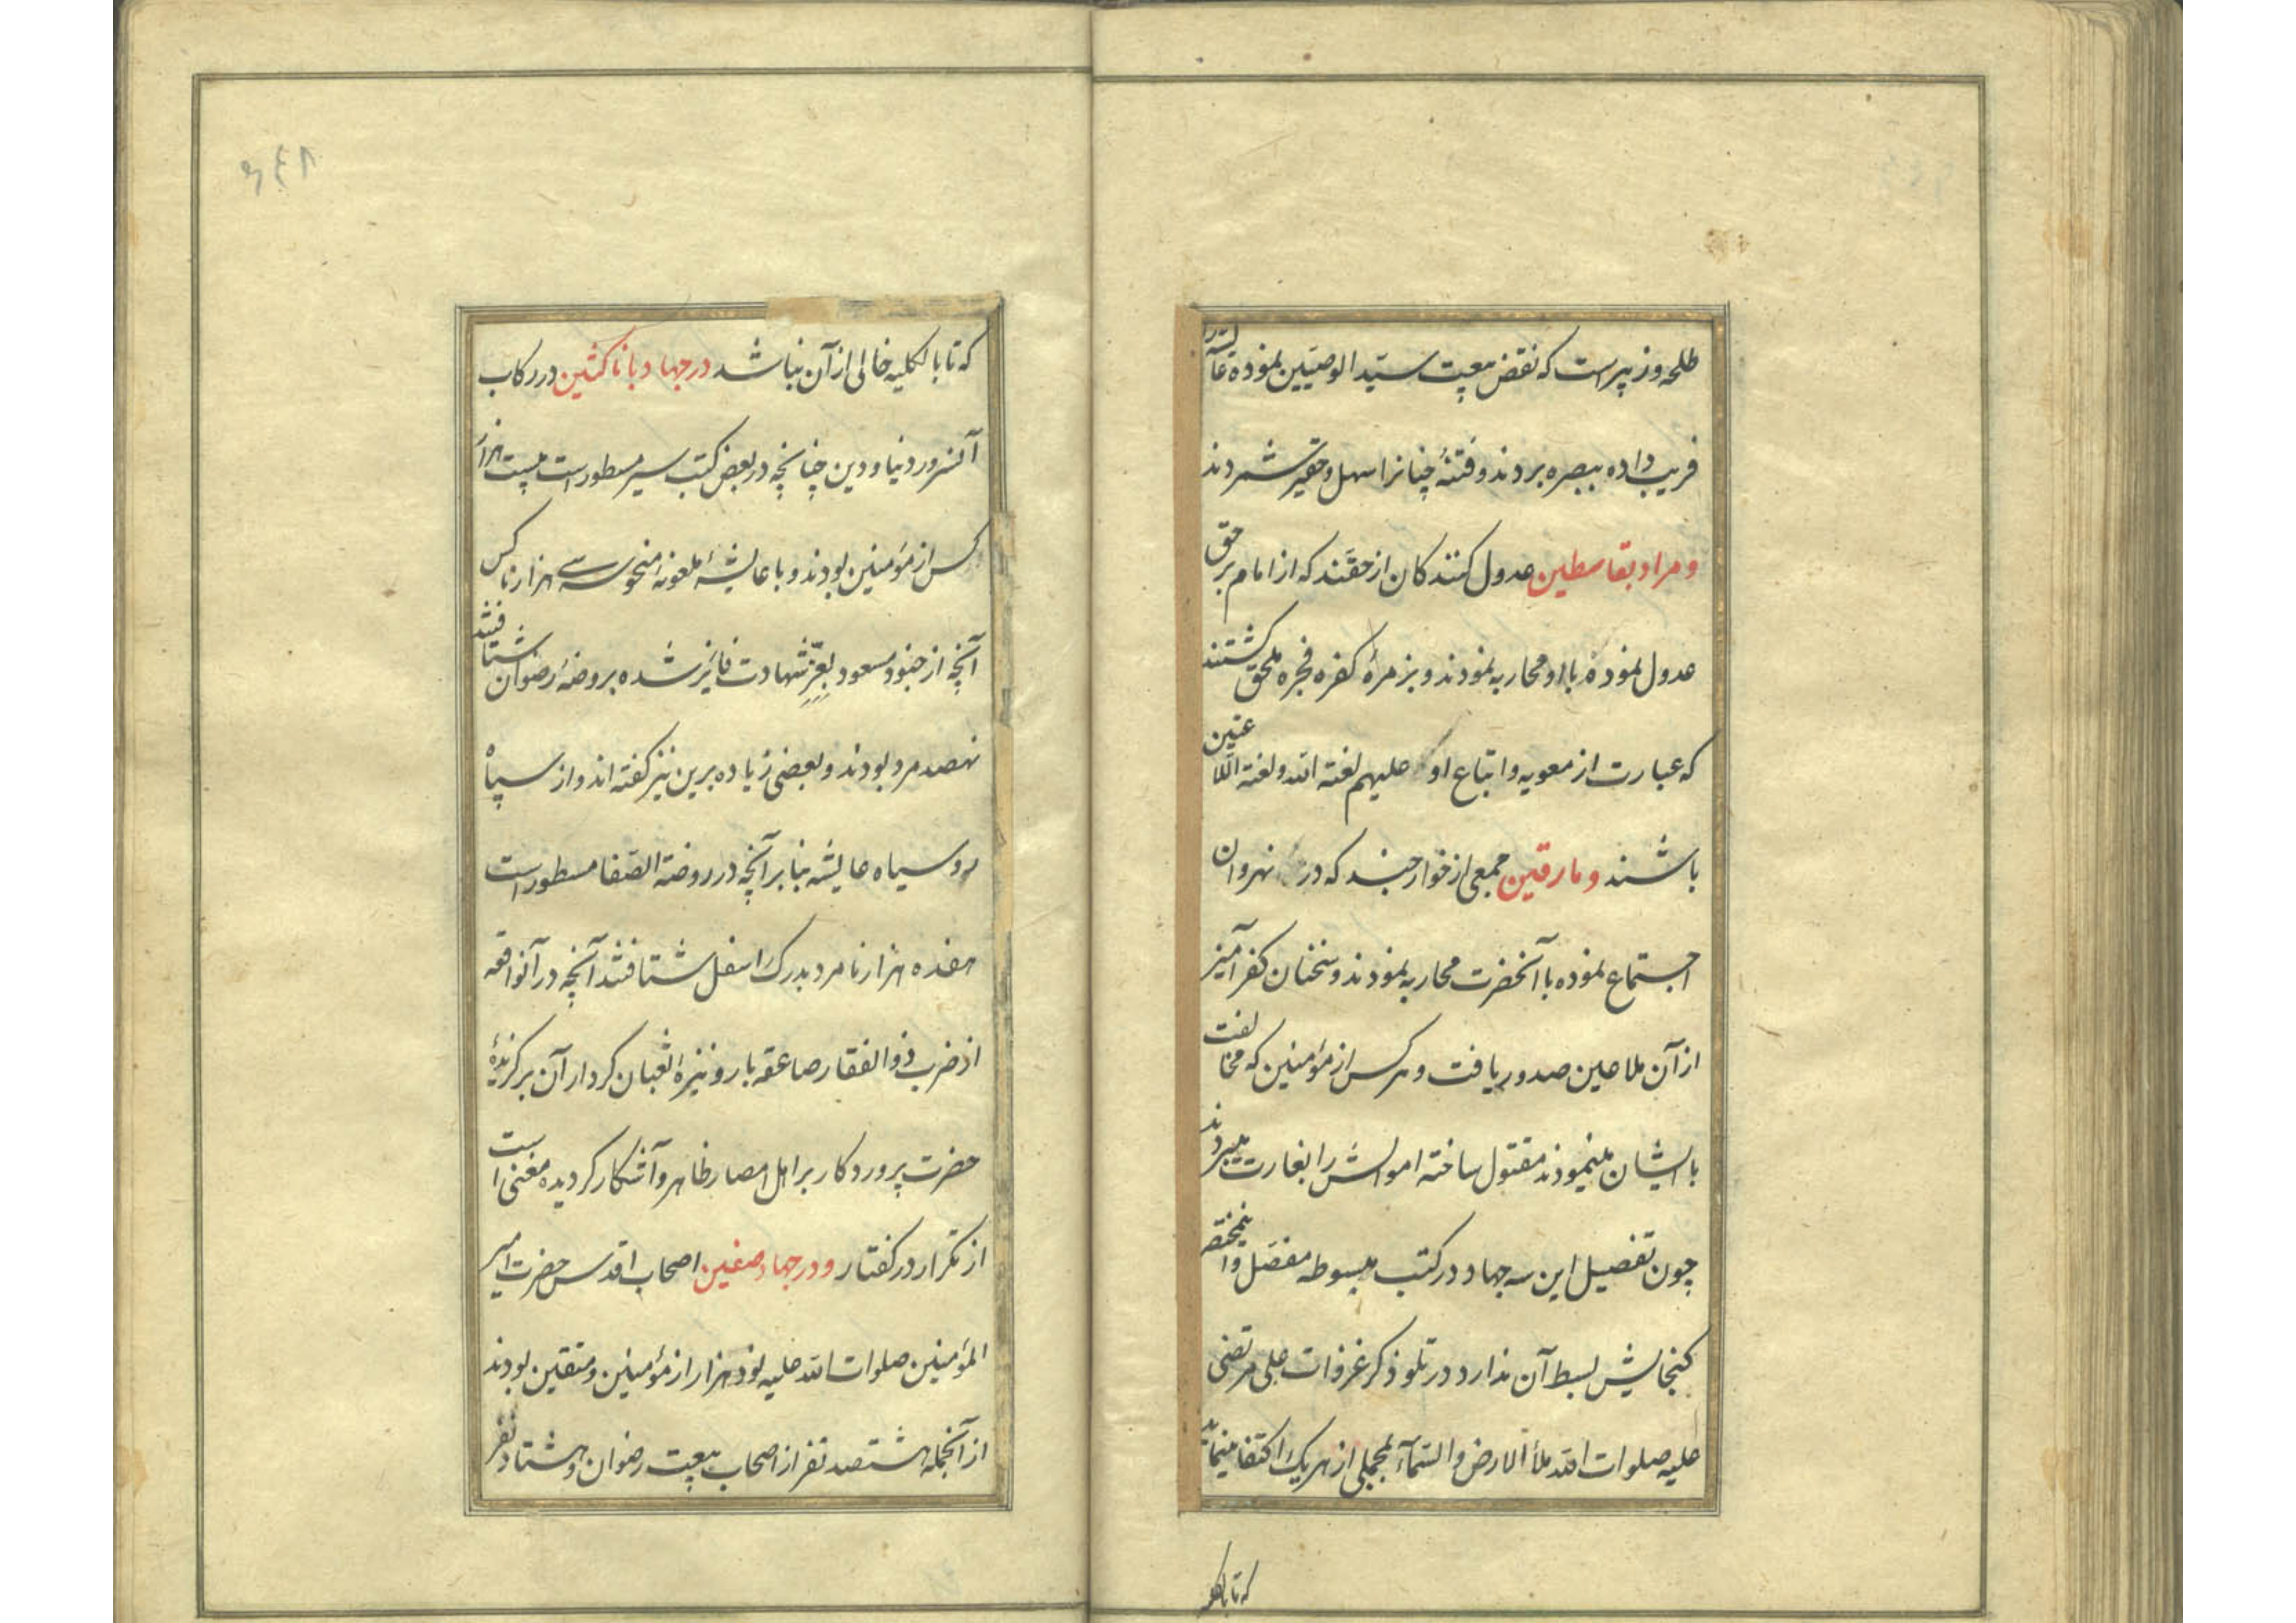 طلحه وزبیرست که نقض بیعت سیّد الوصیّین نموده عایشه را
فریب داده ببصره بردند و فتنهٔ چنانرا سهل و حقیر شمردند
و مراد بقاسطین عدول کنندکان از حقّند که از امام بر حق
عدول نموده با او محاربه نمودند و بزمرهٔ کفره فجره ملحق کشتند
که عبارت از معویه و اتباع او علیهم لعنة الله ولعنة اللّاعنین
باشند و مارقین جمعی از خوارجند که در نهروان
اجتماع نموده با آنحضرت محاربه نمودند و سخنان کفر آمیز
از آن ملاعین صدور یافت و هر کس از مؤمنین که مخالفت
با ایشان مینمودند مقتول ساخته اموالش را بغارت میبردند
چون تفصیل این سه جهاد در کتب مبسوطه مفصّل و اینمختصر
کنجایش بسط آن ندارد در تلو ذکر غزوات علی مرتضی
علیه صلوات الله ملأ الارض والسّمآء بمجملی از هر یک اکتفا مینماید
که تا بالکلیه
۶۴۸
که تا بالکلیه خالی از آن نباشد در جهاد با ناکثین در رکاب
آنسرور دنیا و دین چنانچه در بعض کتب سیر مسطور است بیست هزار
کس از مؤمنین بودند و با عایشهٔ ملعونهٔ منحوسه سی هزار ناکس
آنچه از جنود مسعود بعزّ شهادت فایز شده بروضهٔ رضوان شتافتند
نهصد مرد بودند و بعضی زیاده برین نیز کفته اند و از سپاه
رو سیاه عایشه بنا بر آنچه در روضة الصّفا مسطور است
هفده هزار نامرد بدرک اسفل شتافتند آنچه در آنواقعه
از ضرب ذوالفقار صاعقه بار و نیزهٔ ثعبان کردار آن برکزیدهٔ
حضرت پروردکار بر اهل امصار ظاهر و آشکار کردیده مغنی است
از تکرار در کفتار و در جهاد صفین اصحاب اقدس حضرت امیر
المؤمنین صلوات الله علیه نود هزار از مؤمنین و متقین بودند
از آنجمله هشتصد نفر از اصحاب بیعت رضوان و هشتاد نفر